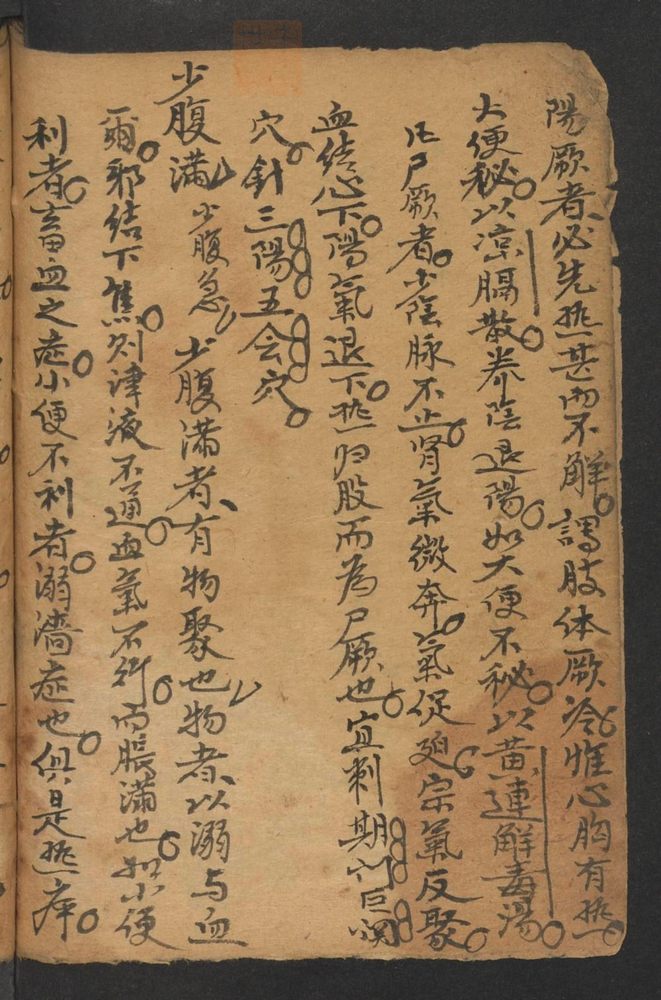 陽厥者必先热甚而不解謂肢体厥冷惟心胸有热
大便秘以凉膈散养陰退陽如大便不秘以黄連解毒湯
凡尸厥者少陰脉不止肾氣微奔氣促廹宗氣反聚
血结心下陽氣退下热归股而為尸厥也宜刺期门巨闕
穴針三陽五会穴
少腹满 少腹急 少腹满者有物聚也物者以溺与血
爾邪结下焦则津液不通血氣不行而脹满也如小便
利者畜血之症小便不利者溺濇症也俱是热病